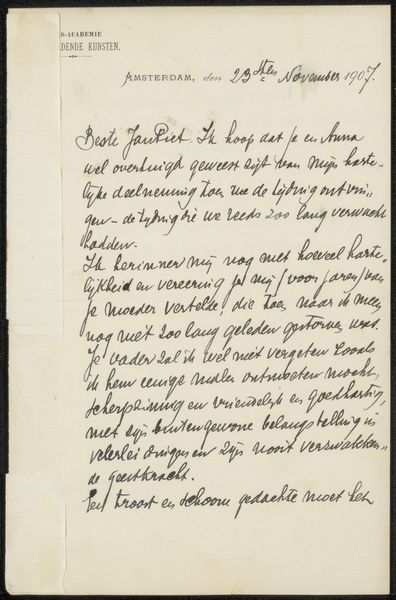 S-ACADEMIE
DENDE KUNSTEN.
AMSTERDAM, den 23sten November 1907.
Beste Jan Piet. Ik hoop dat je en Anna
wel overtuigd geweest zijt van mijn harte-
lijke deelneming toen we de tijding ontvin-
gen - de tijding die we reeds zoo lang verwacht
hadden.
Ik herinner mij nog met hoeveel harte-
lijkheid en vereering je mij (voor jaren) van
je moeder vertelde; die toen naar ik meen
nog niet zoo lang geleden gestorven was.
Je vader zal ik wel niet vergeten zooals
ik hem eenige malen ontmoeten mocht,
scherpzinnig en vriendelijk en goedhartig,
met zijn buitengewone belangstelling in
velerlei dingen en zijn nooit verzwakken-
de geestkracht.
Een troost en schoone gedachte moet het